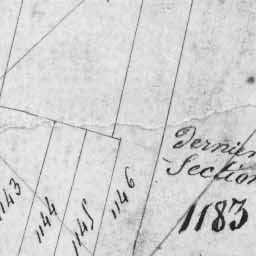 Dernier
Section
1183
1143
1144
1145
1146